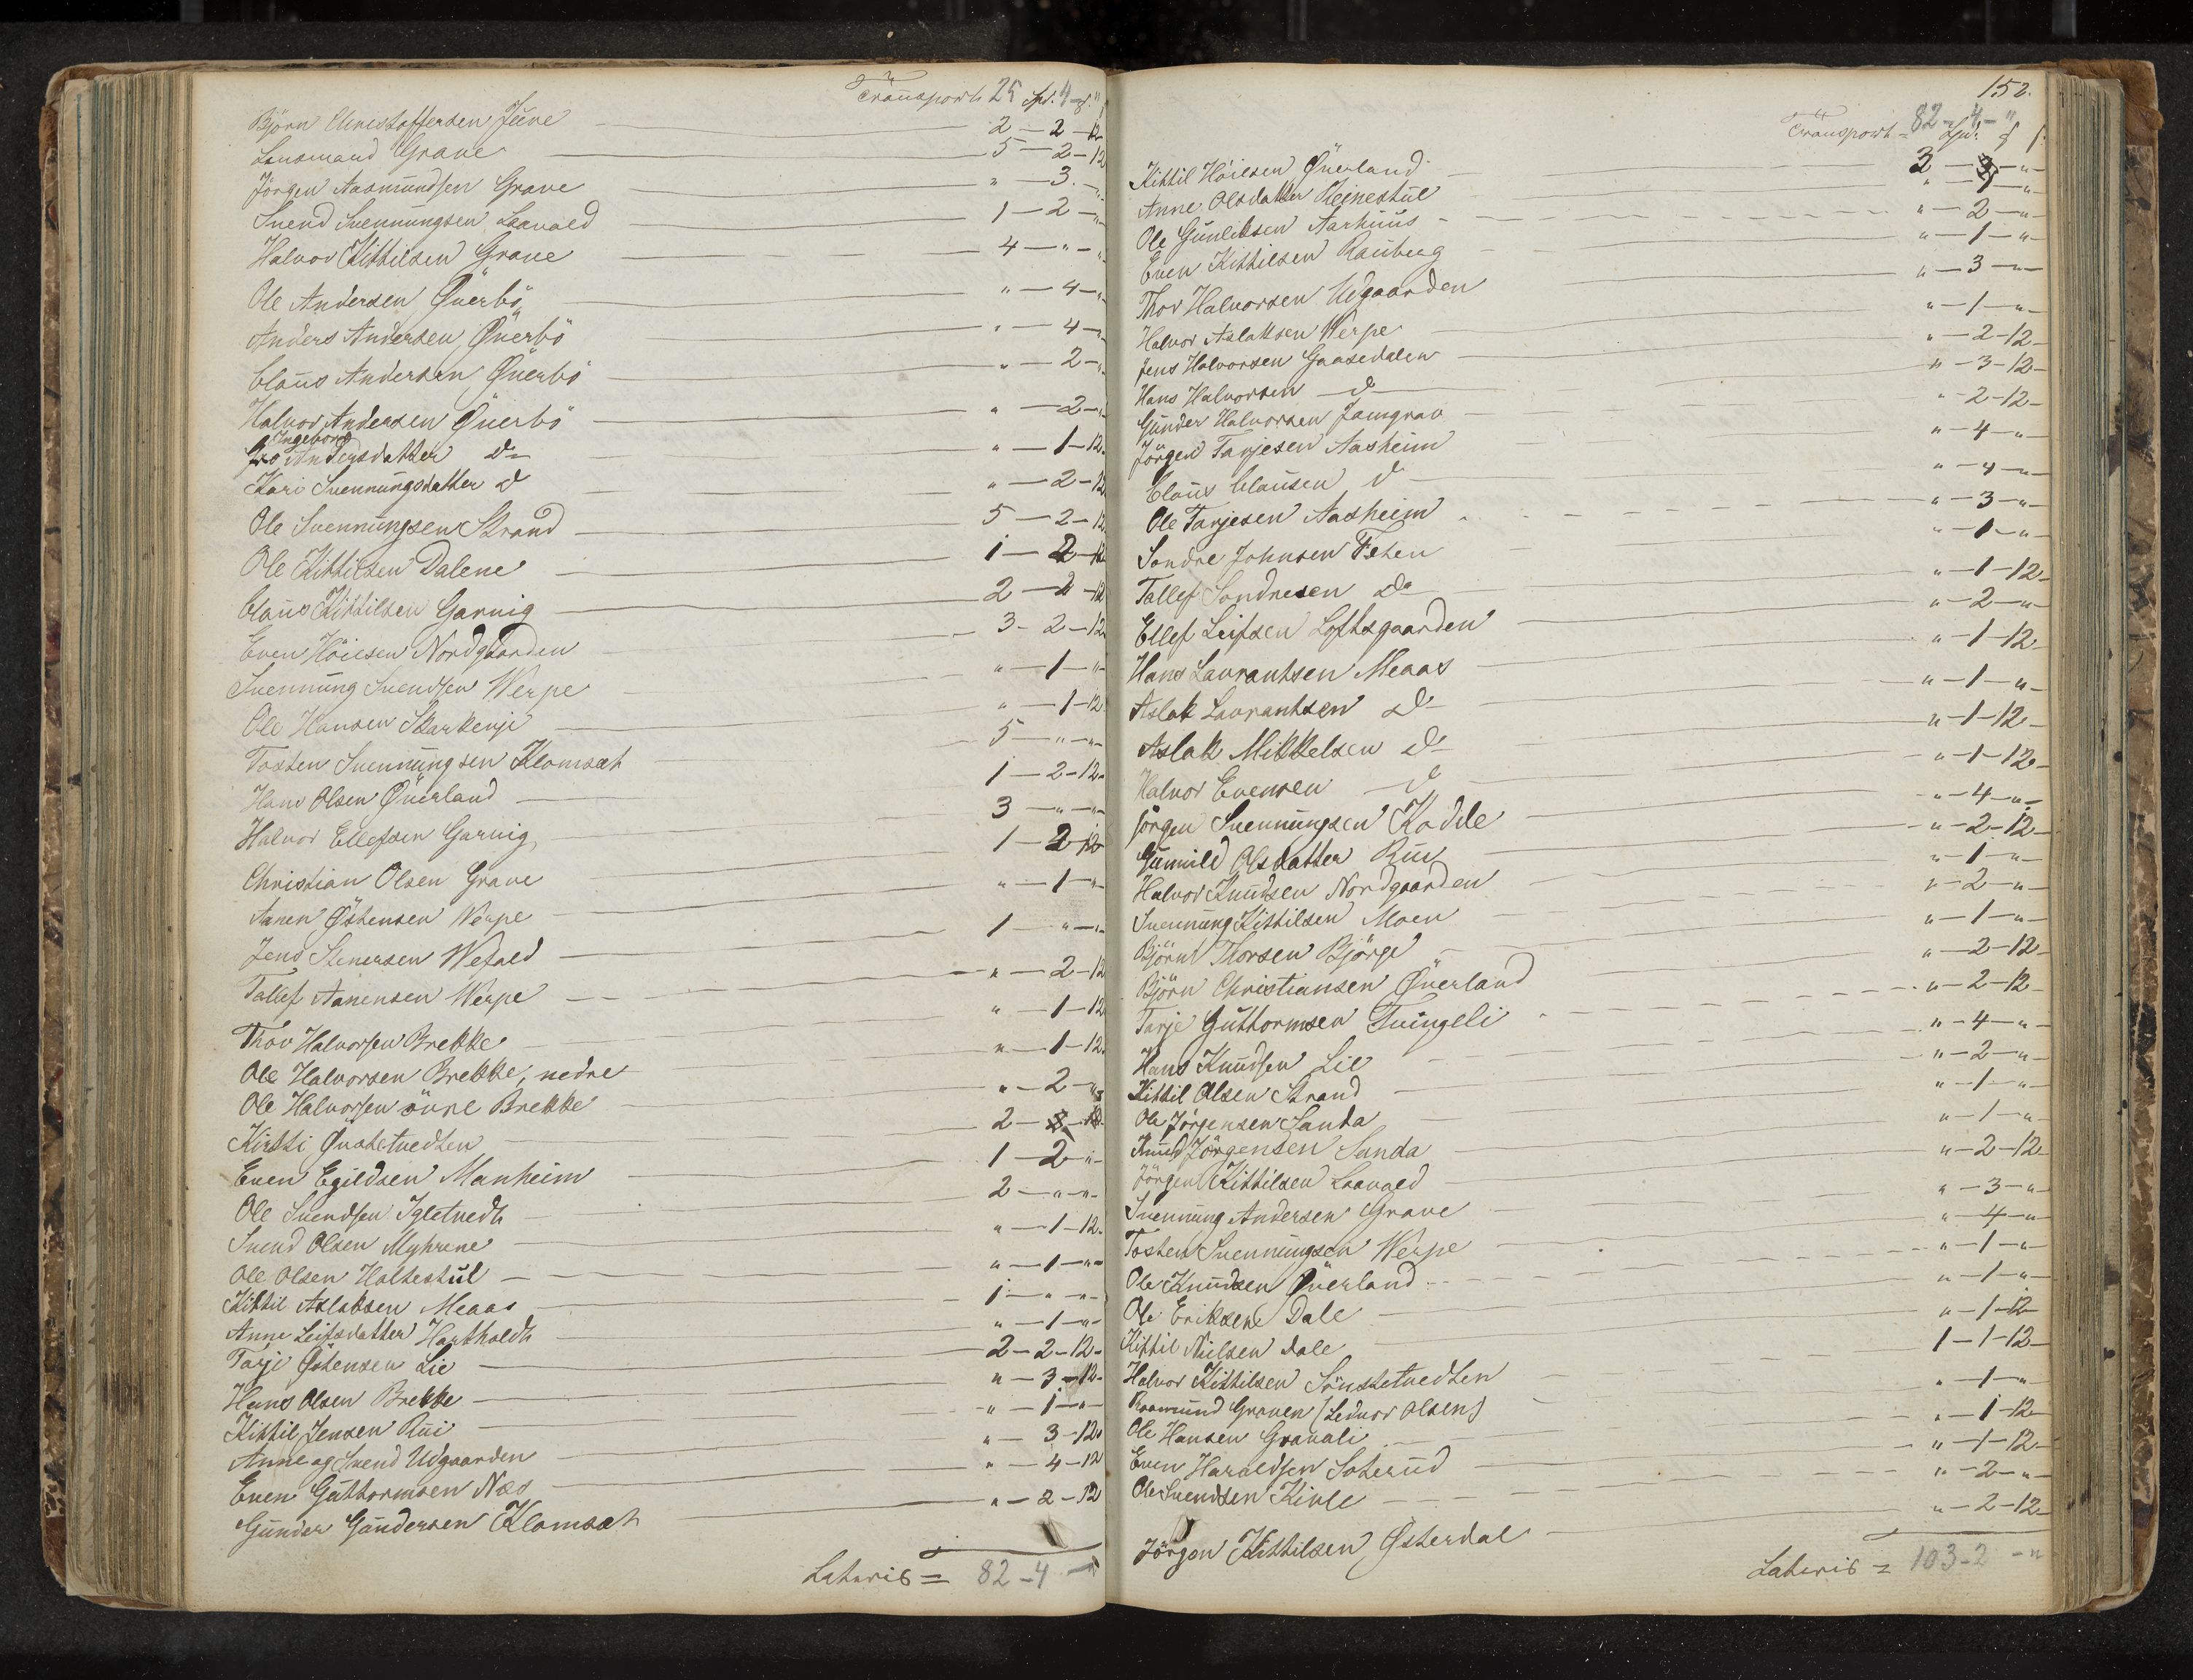 Transport 25 Spd. 4 "
Björn Christoffersen Juve 2 – 2 – 12
Lensmand Grave 5 – 2 – 12
Jörgen Aasmundsen Grave " – 3 – "
Svend Svennungsen Laavald 1 – 2 – "
Halvor Kittilsen Grave 4 – " – "
Ole Andersen Qverbö " – 4 – "
Anders Andersen Qverbö " – 4 – "
Claus Andersen Qverbö " – 2 – "
Halvor Andersen Qverbö " – 2 – "
Ingeborg
Andersdatter do " – 1 – 12
Kari Svennungsdatter do " – 2 – 12
Ole Svennungsen Strand 5 – 2 – 12
Ole Kittilsen Dalene 1 – 2 – 12
Claus Kittilsen Garvig 2 – 2 – 12
Even Höiesen Nordgaarden 3 – 2 – 12
Svennung Svendsen Werpe " – 1 – "
Ole Hansen Skarkenji " – 1 – 12
Tosten Svennungsen Klomsæt 5 – " – "
Hans Olsen Qverland 1 – 2 – 12
Halvor Ellefsen Garvig 3 – " – "
Christian Olsen Grave 1 – 2 – 12
Aanen Östensen Werpe " – 1 – "
Jens Stenersen Wefald 1 – " – "
Tallef Aanensen Werpe " – 2 – 12
Thov Halvorsen Brekke " – 1 – 12
Ole Halvorsen Brekke, nedre " – 1 – 12
Ole Halvorsen övre Brekke " – 2 – "
Kirsti Qvastetvedten 2 – 12
Even Egildsen Manheim 1 – 2 – "
Ole Svendsen Igletvedt 2 – " – "
Svend Olsen Myhrene " – 1 – 12
Ole Olsen Haltestul " – 1 – "
Kittil Aslaksen Meaas 1 – " – "
Anne Leifsdatter Hartholdt " – 1 – "
Tarje Östensen Lie 2 – 2 – 12
Hans Olsen Brekke " – 3 – 12
Kittil Jensen Rui " – 1 – "
Anne og Svend Udgaarden " – 3 – 12
Even Guttormsen Næs " – 4 – 12
Gunder Gundersen Klomsæt " – 2 – 12
Lateris = 82 – 4 – "
152.
Transport = 82 – 4 – "
Kittil Höiesen Qverland 3 – 3 – "
Anne Olsdatter Heinestul " – 1 – "
Ole Gunleiksen Aarhuus " – 2 – "
Even Kittilsen Rauberg " – 1 – "
Thov Halvorsen Udgaarden " – 3 – "
Halvor Aslaksen Werpe " – 1 – "
Jens Halvorsen Gaasedalen " – 2 – 12
Hans Halvorsen do " – 3 – 12
Gunder Halvorsen Jamgrav " – 2 – 12
Jörgen Tarjesen Aasheim " – 4 – "
Claus Clausen do " – 4 – "
Ole Tarjesen Aasheim " – 3 – "
Sondre Johnsen Feten " – 1 – "
Tallef Sondresen do " – 1 – 12
Ellef Leifsen Loftsgaarden " – 2 – "
Hans Laurantsen Meaas " – 1 – 12
Aslak Laurantsen do " – 1 – "
Aslak Mikkelsen do " – 1 – 12
Halvor Evensen do " – 1 – 12
Jörgen Svennungsen Kodde " – 4 – "
Gunnild Olsdatter Rui " – 2 – 12
Halvor Knudsen Nordgaarden " – 1 – "
Svennung Kittilsen Moen " – 2 – "
Björn Thorsen Björge " – 1 – "
Björn Christiansen Qverland " – 2 – 12
Tarje Guttormsen Tvingeli " – 2 – 12
Hans Knudsen Lie " – 4 – "
Kittil Olsen Strand " – 2 – "
Ole Jörgensen Sanda " – 1 – "
Knud Jörgensen Sanda " – 1 – "
Jörgen Kittilsen Laavald " – 2 – 12
Svennung Andersen Grave " – 3 – "
Tosten Svennungsen Werpe " – 4 – "
Ole Knudsen Qverland " – 1 – "
Ole Eriksen Dale " – 1 – "
Kittil Nielsen Dale " – 1 – 12
Halvor Kittilsen Sönstetvedten 1 – 1 – 12
Roamund Graven (Ledvor Olsen) " – 1 – "
Ole Hansen Gravali " – 1 – 12
Even Haraldsen Soterud " – 1 – 12
Ole Svendsen Kivle " – 2 – "
Jörgen Kittilsen Österdal " – 2 – 12
Lateris = 103 – 2 – "